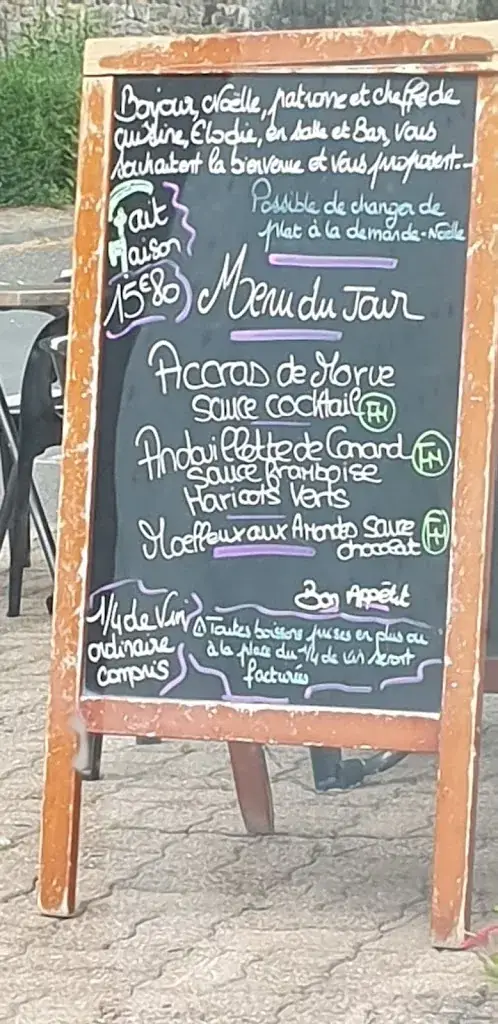 Bonjour, Noëlle, patronne et cheffe de
cuisine, Elodie, en salle et Bar, vous
souhaitent la bienvenue et vous proposent...
Fait
Maison
Possible de changer de
plat à la demande - Noëlle
15€80
Menu du Jour
Accras de Morue
sauce cocktail FM
Andouillette de Canard FM
sauce framboise
Haricots Verts
Moelleux aux Amandes sauce FM
chocolat
Bon Appétit
1/4 de Vin
ordinaire
compris
Toutes boissons prises en plus ou
à la place du 1/4 de vin seront
facturées